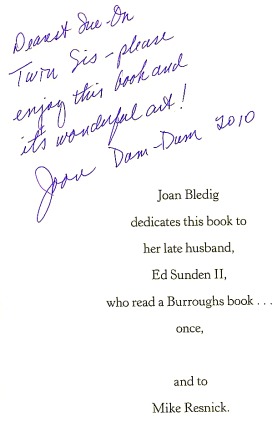 Dearest Sue-On
Twin Sis - please
enjoy this book and
it's wonderful art!
Joan Dum-Dum 2010
Joan Bledig
dedicates this book to
her late husband,
Ed Sunden II,
who read a Burroughs book . . .
once,
and to
Mike Resnick.